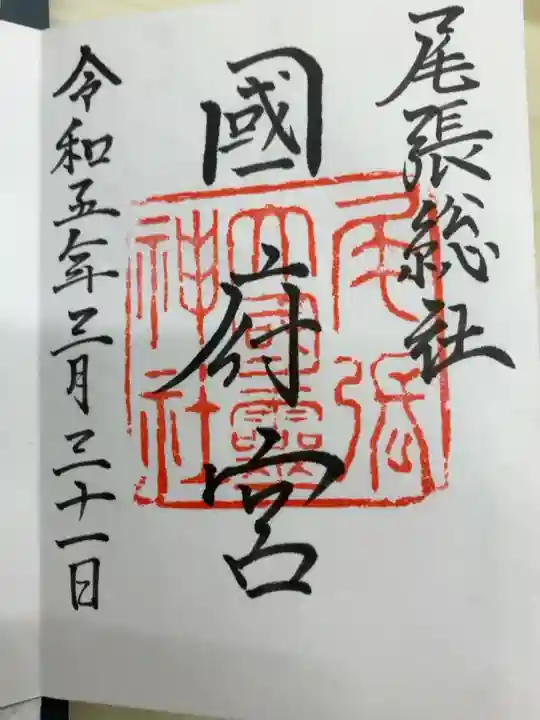 尾張総社
國府宮
令和五年三月三十一日
尾張
大國霊
神社